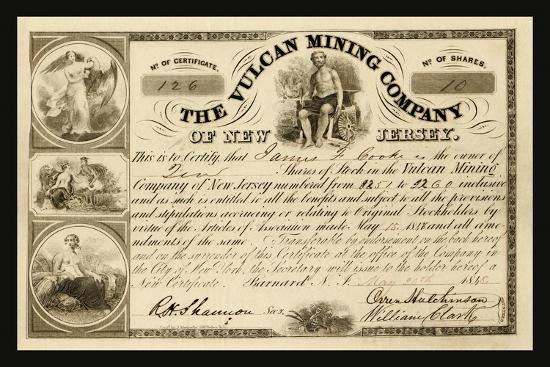 Nº OF CERTIFICATE.
126
Nº OF SHARES.
10
THE VULCAN MINING COMPANY
OF NEW JERSEY.
This is to Certify, that James F Cooke is the owner of
Ten Shares of Stock in the Vulcan Mining
Company of New Jersey numbered from 9251 to 9260 inclusive
and as such is entitled to all the benefits and subject to all the provisions
and stipulations accruing or relating to Original Stockholders by
virtue of the Articles of Association made May 15. 1848 and all ame-
ndments of the same. Transferable by endorsement on the back hereof
and on the surrender of this Certificate at the office of the Company in
the City of New York, the Secretary will issue to the holder hereof a
New Certificate. Barnard N. J. May 1848
R.H. Shannon Secy.
Orren Hutchinson
William Clark